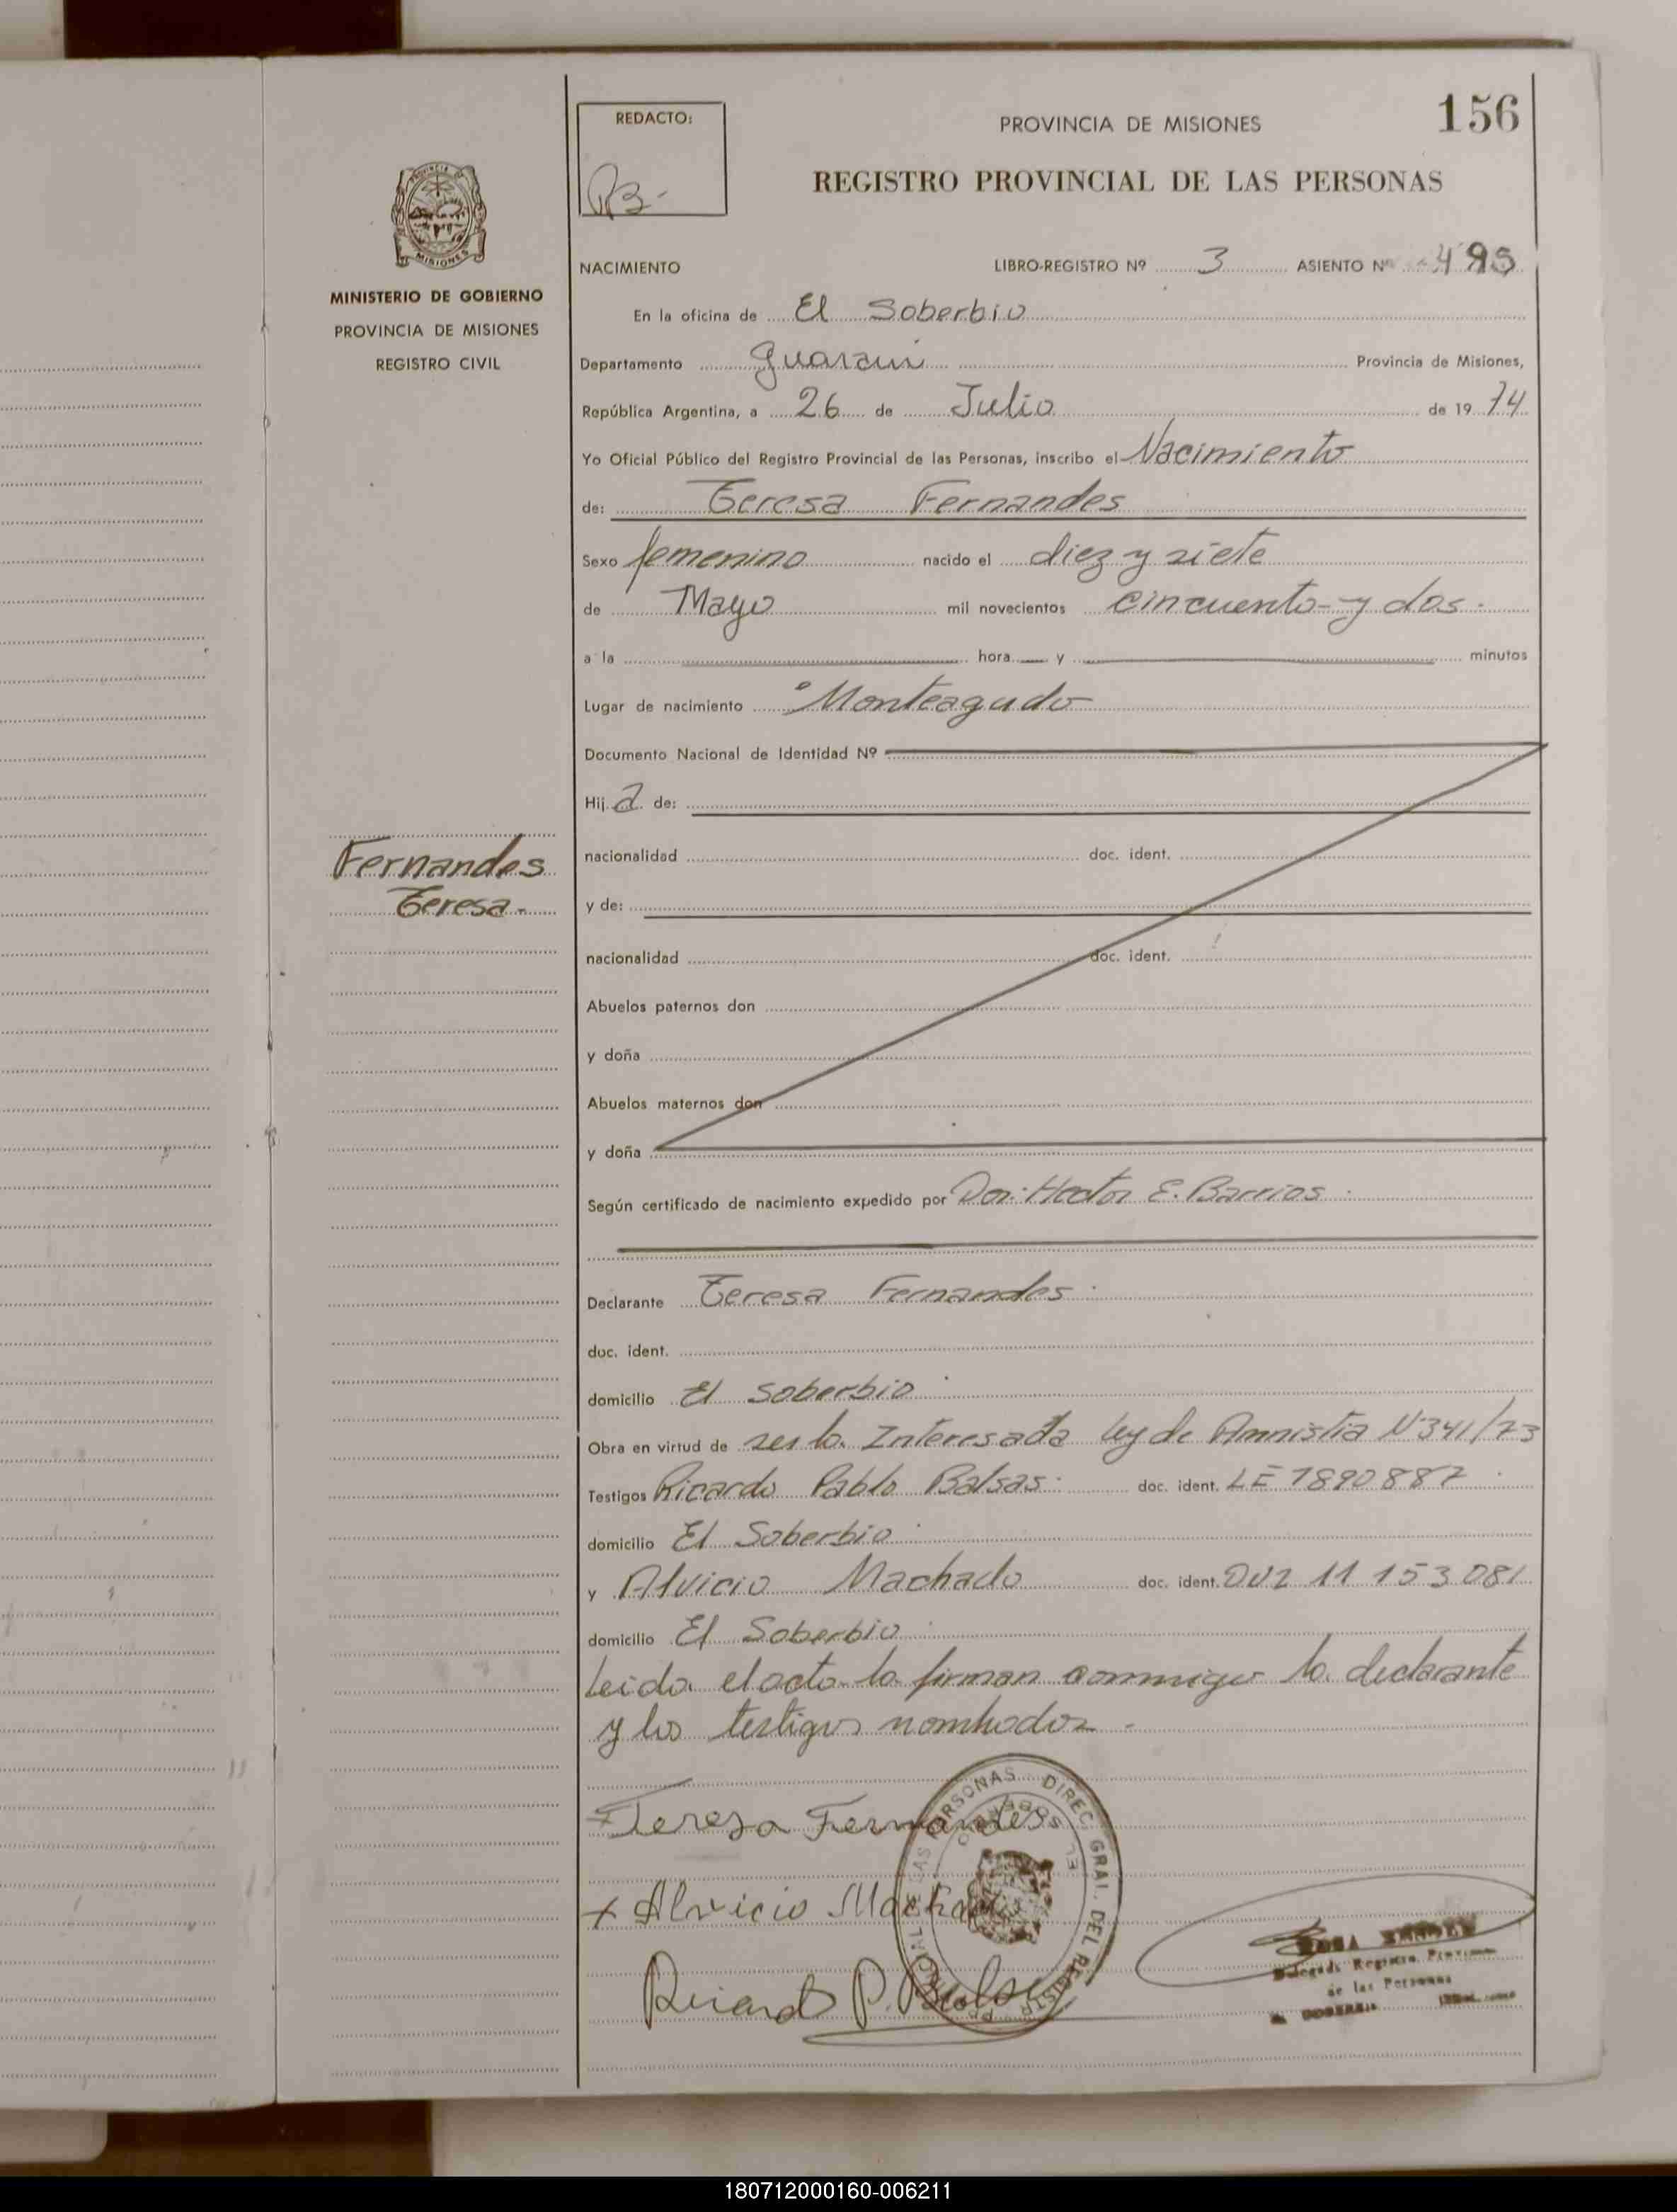 156
REDACTO:
PROVINCIA DE MISIONES
REGISTRO PROVINCIAL DE LAS PERSONAS
MISIONES
MINISTERIO DE GOBIERNO
PROVINCIA DE MISIONES
REGISTRO CIVIL
NACIMIENTO LIBRO-REGISTRO Nº 3 ASIENTO Nº 495
En la oficina de El Soberbio
Departamento Guarani Provincia de Misiones,
República Argentina, a 26 de Julio de 19 74
Yo Oficial Público del Registro Provincial de las Personas, inscribo el Nacimiento
de: Teresa Fernandes
Sexo femenino nacido el diez y siete
de Mayo mil novecientos cincuenta y dos.
a la hora y minutos
Lugar de nacimiento Monteagudo
Documento Nacional de Identidad Nº
Hij a de:
nacionalidad doc. ident.
y de:
nacionalidad doc. ident.
Abuelos paternos don
y doña
Abuelos maternos don
y doña
Fernandes
Teresa-
Según certificado de nacimiento expedido por Don: Hector E. Barrios
Declarante Teresa Fernandes
doc. ident.
domicilio El Soberbio
Obra en virtud de ser la Interesada ley de Amnistia Nº 341/73
Testigos Ricardo Pablo Balsas doc. ident. LE 7890887
domicilio El Soberbio
y Alvicio Machado doc. ident. 11 153 081
domicilio El Soberbio
Leida el acta la firman conmigo la declarante
y los testigos nombrados -
Teresa Fernandes
+ Alvicio Machado
Ricardo P. Balsas
DIREC. GRAL. DEL REGISTRO PROVINCIAL DE LAS PERSONAS
EL SOBERBIO
Delegada Registro Provincial
de las Personas
180712000160-006211